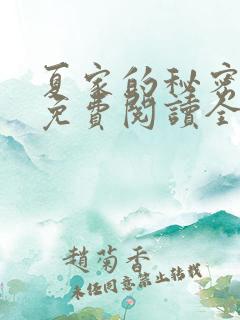 夏家的秘密
免費閱讀全
趙菊香
未经同意禁止转载